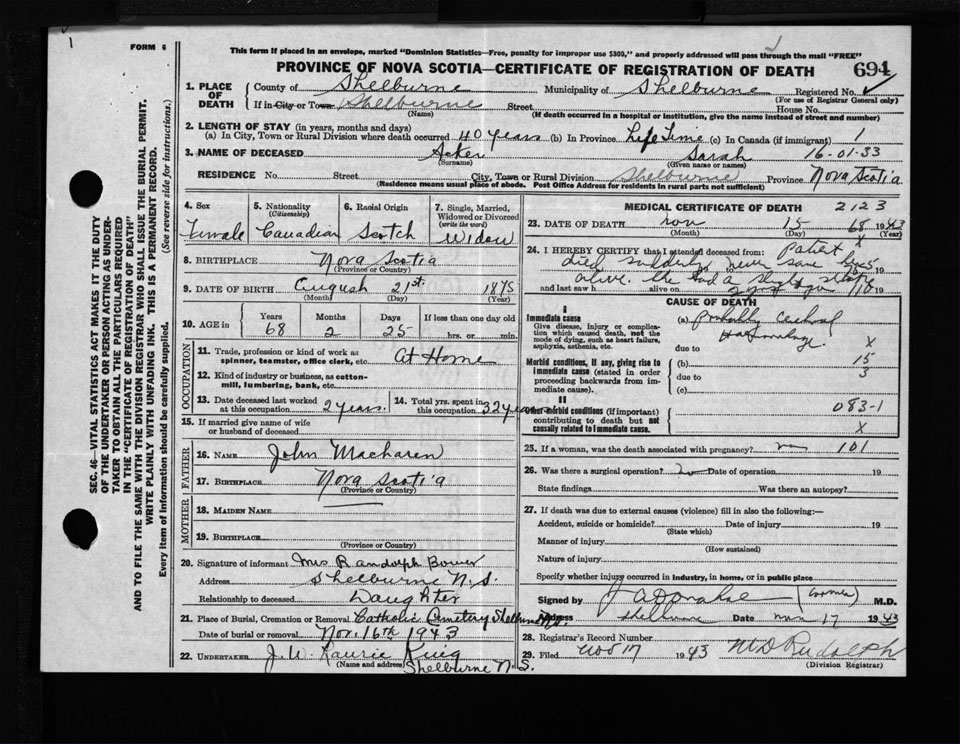 1
FORM 6
This form if placed in an envelope, marked "Dominion Statistics—Free, penalty for improper use $300," and properly addressed will pass through the mail "FREE"
PROVINCE OF NOVA SCOTIA—CERTIFICATE OF REGISTRATION OF DEATH 694
SEC. 46—VITAL STATISTICS ACT MAKES IT THE DUTY
OF THE UNDERTAKER OR PERSON ACTING AS UNDER-
TAKER TO OBTAIN ALL THE PARTICULARS REQUIRED
IN THE "CERTIFICATE OF REGISTRATION OF DEATH"
AND TO FILE THE SAME WITH THE DIVISION REGISTRAR WHO SHALL ISSUE THE BURIAL PERMIT.
WRITE PLAINLY WITH UNFADING INK. THIS IS A PERMANENT RECORD.
Every item of information should be carefully supplied. (See reverse side for instructions.)
1. PLACE OF DEATH
County of Shelburne Municipality of Shelburne Registered No.
(For use of Registrar General only)
If in City or Town Shelburne Street House No.
(Name) (If death occurred in a hospital or institution, give the name instead of street and number)
2. LENGTH OF STAY (in years, months and days)
(a) In City, Town or Rural Division where death occurred 40 years (b) In Province Life Time (c) In Canada (if immigrant) 1
3. NAME OF DECEASED Acker Sarah 16-01-33
(Surname) (Given name or names)
RESIDENCE No. Street City, Town or Rural Division Shelburne Province Nova Scotia
(Residence means usual place of abode. Post Office Address for residents in rural parts not sufficient)
4. Sex
Female
5. Nationality
(Citizenship)
Canadian
6. Racial Origin
Scotch
7. Single, Married,
Widowed or Divorced
(write the word)
Widow
8. BIRTHPLACE Nova Scotia
(Province or Country)
9. DATE OF BIRTH August 21st. 1875
(Month) (Day) (Year)
10. AGE in Years Months Days If less than one day old
68 2 25 hrs. or min.
OCCUPATION
11. Trade, profession or kind of work as
spinner, teamster, office clerk, etc. At Home
12. Kind of industry or business, as cotton-
mill, lumbering, bank, etc.
13. Date deceased last worked
at this occupation 2 years.
14. Total yrs. spent in
this occupation 32 years
15. If married give name of wife
or husband of deceased
FATHER
16. NAME John
17. BIRTHPLACE Nova Scotia
(Province or Country)
MOTHER
18. MAIDEN NAME
19. BIRTHPLACE
(Province or Country)
20. Signature of informant Mrs Randolph Bower
Address Shelburne N.S.
Relationship to deceased Daughter
21. Place of Burial, Cremation or Removal Catholic Cemetery Shelburne
Date of burial or removal Nov. 16th 1943
22. UNDERTAKER J.W. Laurie King
(Name and address) Shelburne N.S.
MEDICAL CERTIFICATE OF DEATH 2123
23. DATE OF DEATH Nov 15 68 1943
(Month) (Day) (Year)
24. I HEREBY CERTIFY that I attended deceased from Patient X
died suddenly never saw
and last saw h alive on 19
alive. She had a slight stroke
2 yrs ago 110
CAUSE OF DEATH
I
Immediate cause
Give disease, injury or complica-
tion which caused death, not the
mode of dying, such as heart failure,
asphyxia, asthenia, etc.
(a) probably cerebral
Haemorrhage
due to X
Morbid conditions, if any, giving rise to
immediate cause (stated in order
proceeding backwards from im-
mediate cause).
(b) 15
due to 3
(c)
II
Other morbid conditions (if important)
contributing to death but not
causally related to immediate cause.
083-1
X
25. If a woman, was the death associated with pregnancy? no 101
26. Was there a surgical operation? no Date of operation 19
State findings Was there an autopsy?
27. If death was due to external causes (violence) fill in also the following:—
Accident, suicide or homicide? Date of injury 19
(State which)
Manner of injury
(How sustained)
Nature of injury
Specify whether injury occurred in industry, in home, or in public place
Signed by (Coroner) M.D.
Address Shelburne Date Nov 17 1943
28. Registrar's Record Number
29. Filed Nov 17 1943 M D Rudolph
(Division Registrar)